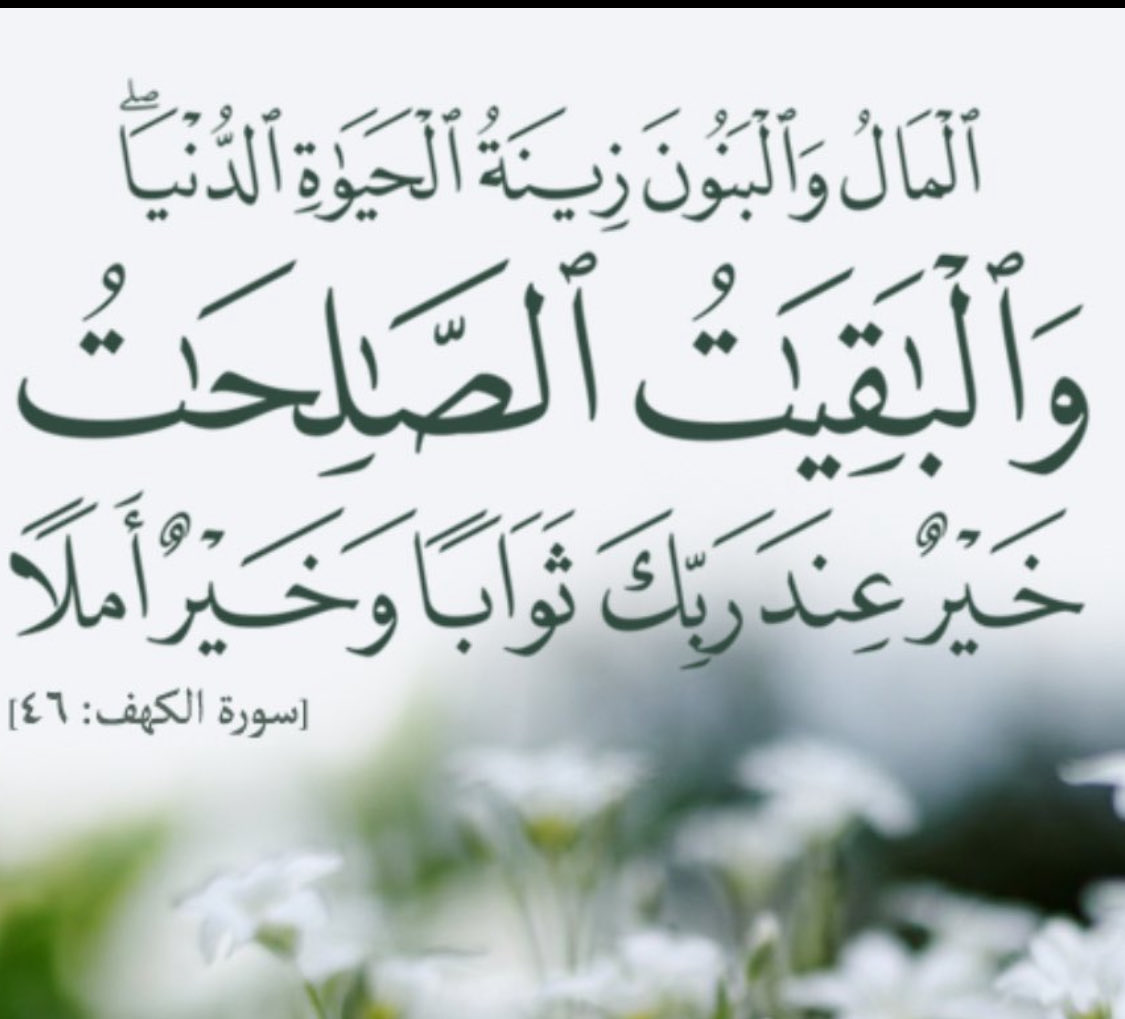 ٱلْمَالُ وَٱلْبَنُونَ زِينَةُ ٱلْحَيَوٰةِ ٱلدُّنْيَاۖ
وَٱلْبَٰقِيَٰتُ ٱلصَّٰلِحَٰتُ
خَيْرٌ عِندَ رَبِّكَ ثَوَابًا وَخَيْرٌ أَملًا
[سورة الكهف: ٤٦]